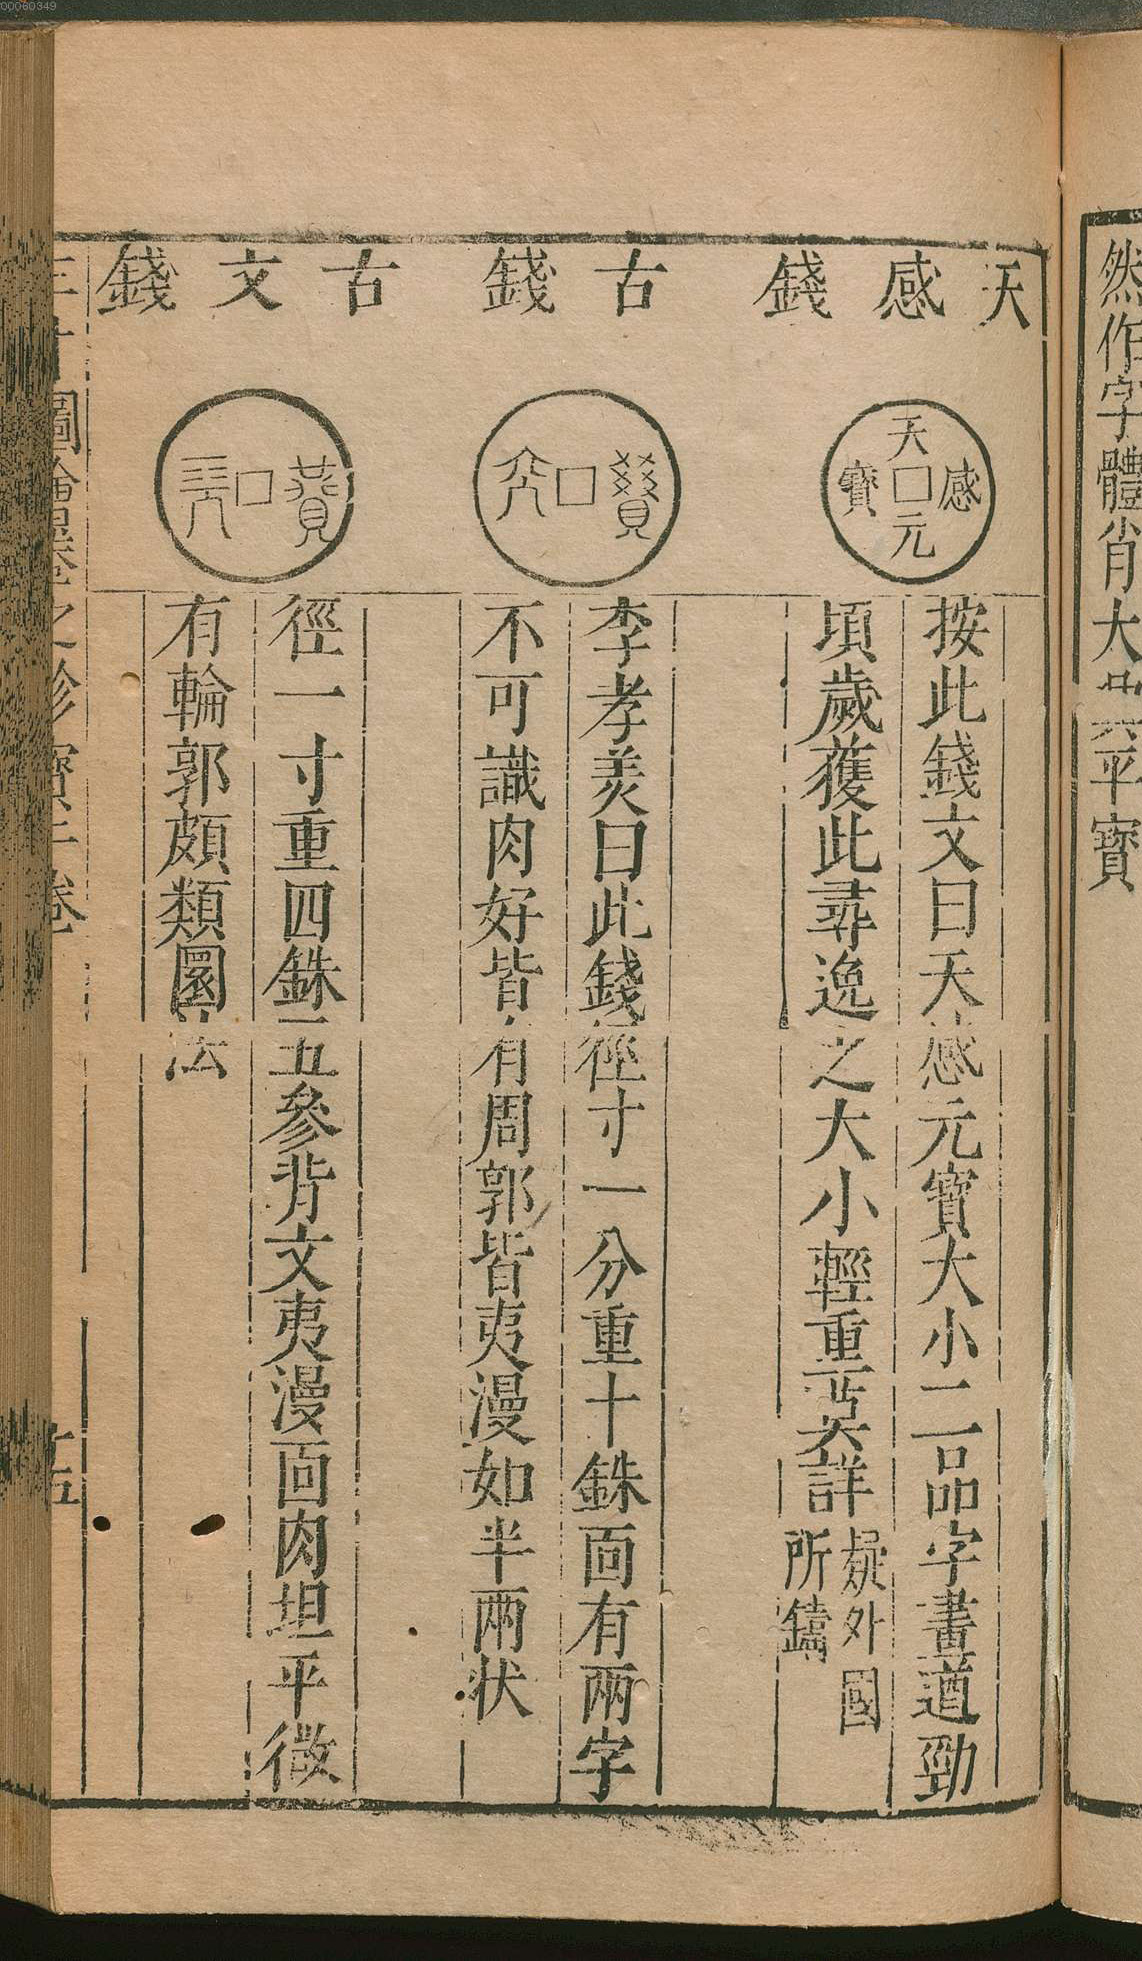 00060349
然作字體肖大
平寶
天感錢
天感元寶
按此錢文曰天感元寶大小二品字畫遒勁
頃歲獲此尋逸之大小輕重莫詳疑外國
所鑄
古錢
李孝美曰此錢徑寸一分重十銖面有兩字
不可識肉好皆有周郭皆夷漫如半兩狀
古文錢
徑一寸重四銖五參背文夷漫面肉坦平微
有輪郭頗類圜法
圖會 珍寶 卷